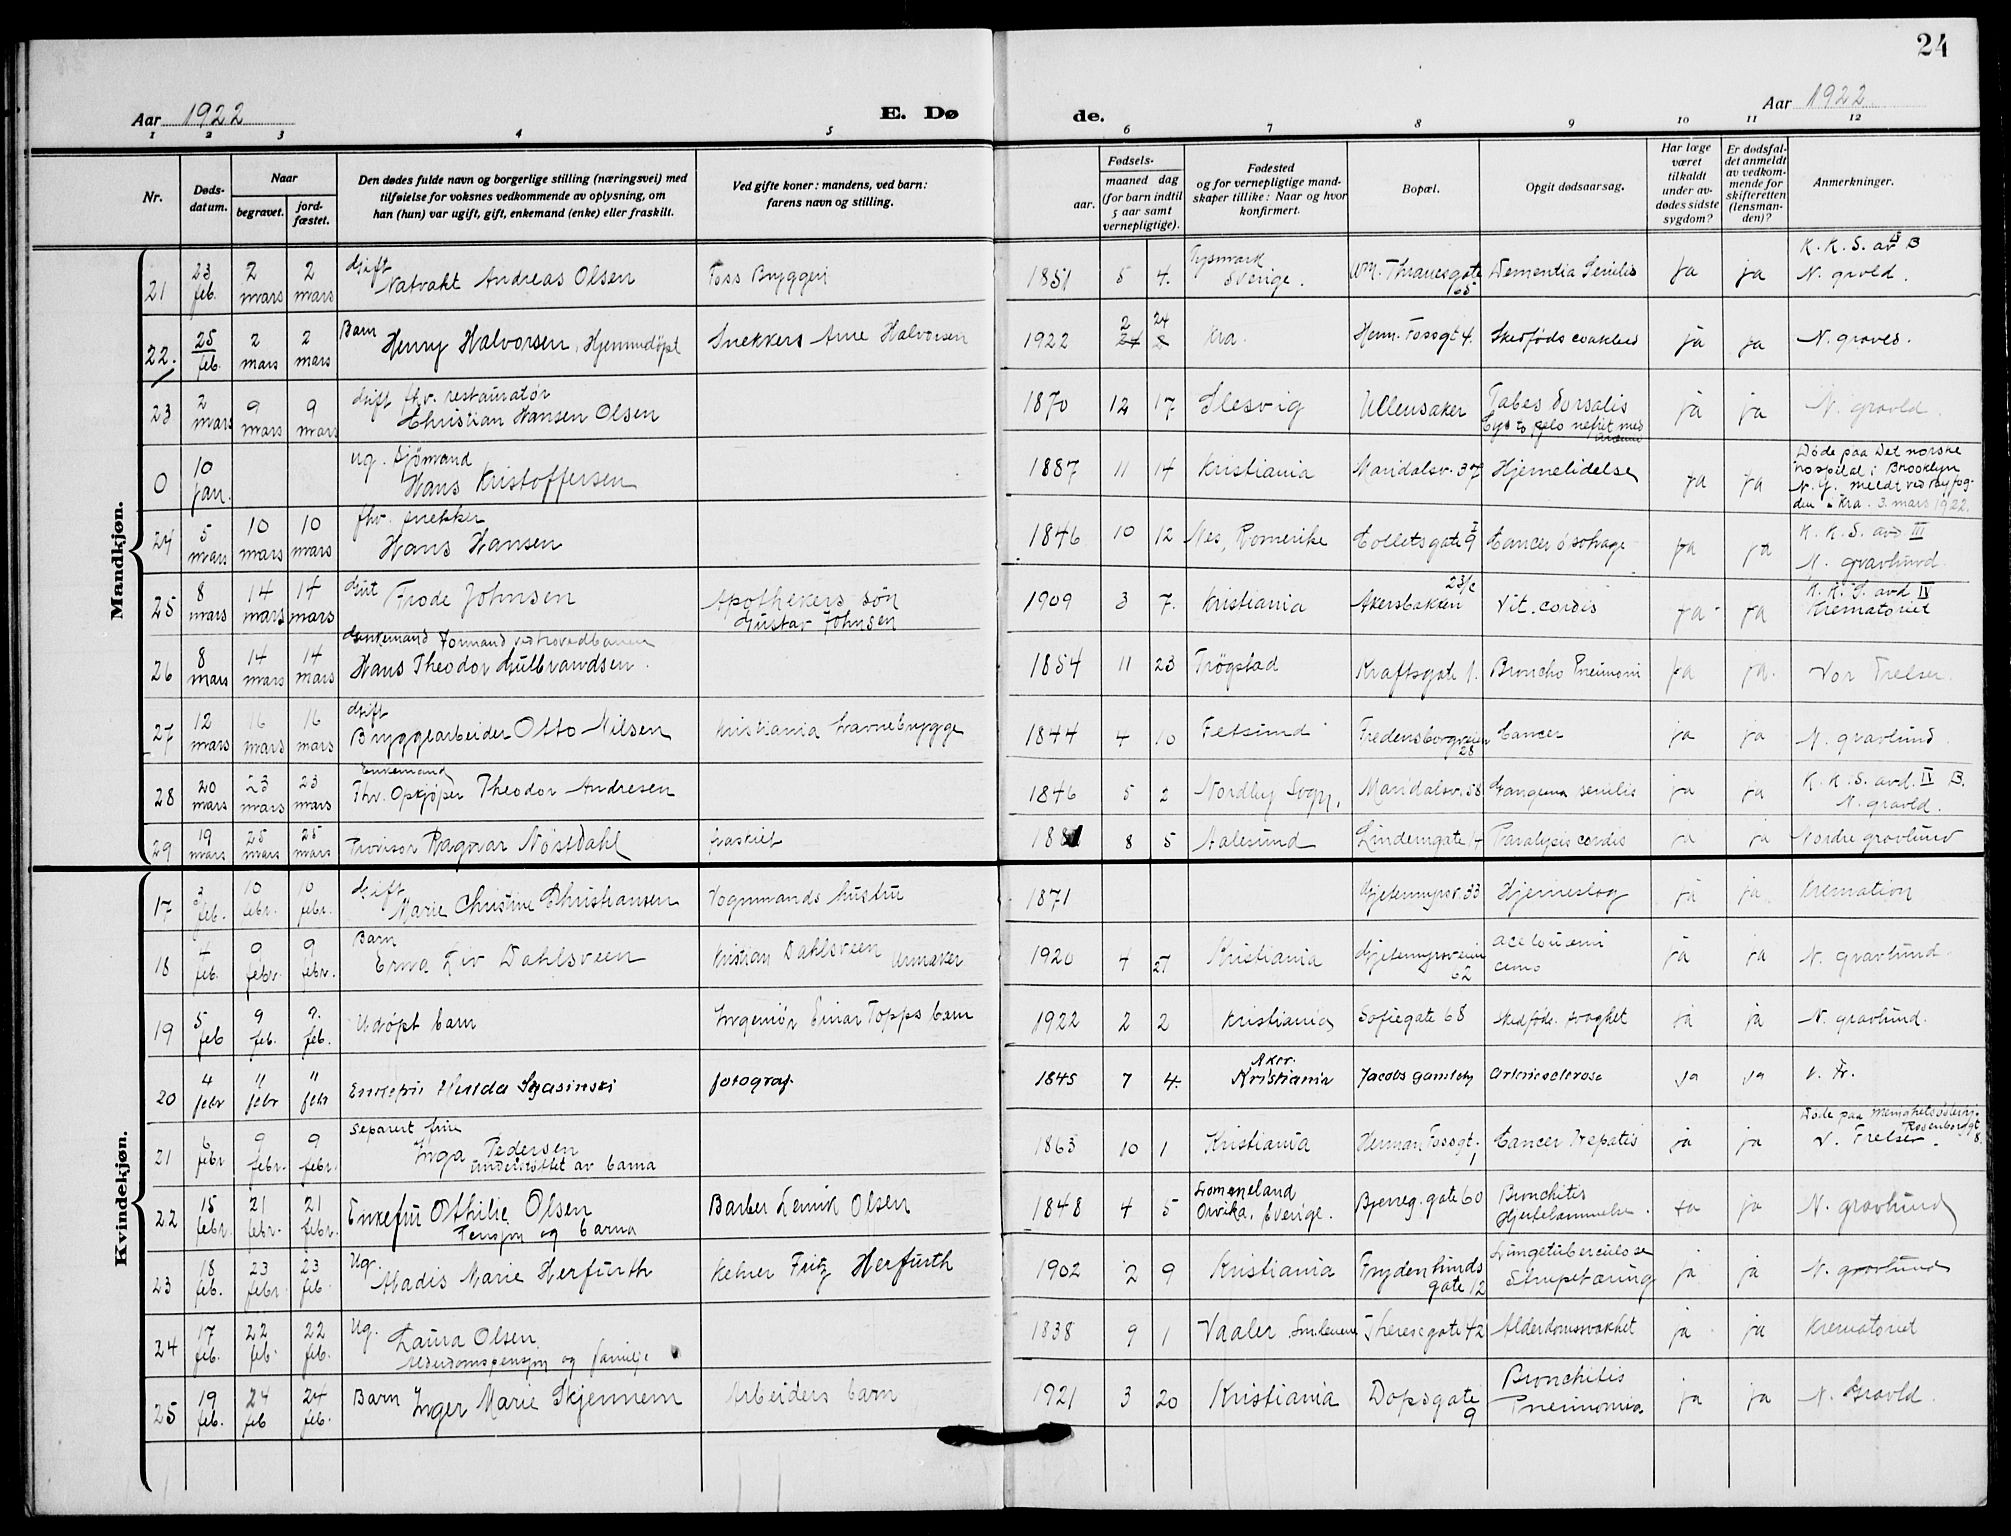 24
Aar 1922 E. Dø de. Aar 1922
1 2 3 4 5 6 7 8 9 10 11 12
Nr.
Døds-
datum.
Naar
begravet.
jord-
fæstet.
Den dødes fulde navn og borgerlige stilling (næringsvei) med
tilføielse for voksnes vedkommende av oplysning, om
han (hun) var ugift, gift, enkemand (enke) eller fraskilt.
Ved gifte koner: mandens, ved barn:
farens navn og stilling.
Fødsels-
aar.
maaned dag
(for barn indtil
5 aar samt
vernepligtige).
Fødested
og for vernepligtige mand-
skaper tillike: Naar og hvor
konfirmert.
Bopæl.
Opgit dødsaarsag.
Har læge
været
tilkaldt
under av-
dødes sidste
sygdom?
Er dødsfal-
det anmeldt
av vedkom-
mende for
skifteretten
(lensman-
den)?
Anmerkninger.
Mandkjøn.
21 23 feb. 2 mars 2 mars Gift Natvakt Andreas Olsen Foss Bryggeri 1851 5 4. Sverige. Wm. Thranesgate 65 Dementia Senilis ja ja K. K. S. av B N. gravld.
22. 25 feb. 2 mars 2 mars Barn Henry Halvorsen, Hjemmedøpt Snekkers Arne Halvorsen 1922 2 24 Kra. Herm. Fossgt 4. Medføds svakhed ja ja N. gravld.
23 2 mars 9 mars 9 mars Gift fhv. restauratør Christian Hansen Olsen 1870 12 17 Slesvig Ullensaker Tabes dorsalis ja ja N. gravld.
0 10 jan. Ug. sjømand Hans Kristoffersen 1887 11 14 Kristiania Maridalsv. 37 Hjernelidelse ja ja Døde paa Det norske hospital i Brooklyn N.Y. meldt ved byfogden i Kra. 3. mars 1922.
24 5 mars 10 mars 10 mars fhv. snekker Hans Hansen 1846 10 12 Nes, Romerike Colletsgate 9 Cancer øsofage ja ja K. K. S. avd III N. gravlund.
25 8 mars 14 mars 14 mars Gut Frode Johnsen Apothekers søn Gustav Johnsen 1909 3 7. Kristiania Akersbakken 23/c Vit. cordis ja ja K. K. S. avd IV Krematoriet
26 8 mars 14 mars 14 mars Enkemand Formand ved hovedbanen Hans Theodor Gulbrandsen. 1854 11 23 Trøgstad Kraftsgate 1. Broncho Pneimoni ja ja. Vor Frelser.
27 12 mars 16 mars 16 mars Gift Bryggearbeider Otto Nilsen Kristiania havnebrygge 1844 4 10 Fetsund Fredensborgveien 28 Cancer ja ja N. gravlund
28 20 mars 23 mars 23 mars Enkemand Fhv. Opkjøper Theodor Andresen 1846 5 2 Nordby Sogn. Maridalsv. 58 Gangren senilis ja ja K. K. S. avd. IV B. N. gravld.
29 19 mars 25 mars 25 mars Provisor Ragnvar Nøstdahl fraskilt 1881 8 5 Aalesund Lindemgate 14 Paralysis cordis ja ja Nordre gravlund
Kvindekjøn.
17 3 feb. 10 febr. 10 febr. Gift Marie Christine Christiansen Vognmands hustru 1871 Gjetemyrsv. 33 Hjerneslag ja ja Kremation
18 4 feb. 9 febr. 9 febr. Barn Erna Liv Dahlsveen Kristian Dahlsveen Urmaker 1920 4 27 Kristiania Gjetemyrsveien 62 ja ja N. gravlund.
19 5 feb 9 feb. 9. feb. Udøpt barn Ingeniør Einar Topps barn 1922 2 2 Kristiania Sofiegate 68 Medføds. svaghet ja ja N. gravlund.
20 4 febr " febr " febr Enkefru Hulda Szasinski fotograf. 1845 7 4. Aker. Kristiania Jacobs gamleby arteriosclerose ja ja V. Fr.
21 6 febr 9 febr. 9 febr. Separert frue Inga Pedersen understøttet av barna 1863 10 1 Kristiania Herman Fossgt. 1 Cancer Hepatis ja ja Døde paa Menighetssøsterhj. Rosenborggt 8. V. Frelser.
22 15 febr. 21 febr. 21 febr. Enkefru Othilie Olsen Pensjon og barna Barber Henrik Olsen 1848 4 5 Arvika, Sverige. Bjerreg. gate 60 Bronchitis Hjertelammelse. ja ja N. gravlund
23 18 feb. 23 febr 23 feb Ug. Aladis Marie Herfurth Kelner Fritz Herfurth 1902 2 9 Kristiania Frydenlunds gate 12 Lungetuberculose Strupetæring ja ja N. gravlund
24 17 feb. 22 feb. 22 feb. Ug. Laura Olsen. Alderdomspensjon og familje 1838 9 1 Vaaler Smlenene Theresegate 42 Alderdomssvakhet ja ja Krematoriet
25 19 feb. 24 feb 24 feb. Barn Inger Marie Skjennem Arbeiders barn 1921 3 20 Kristiania Dopsgate 9 Bronchitis Pneimonia ja ja N. Gravld.